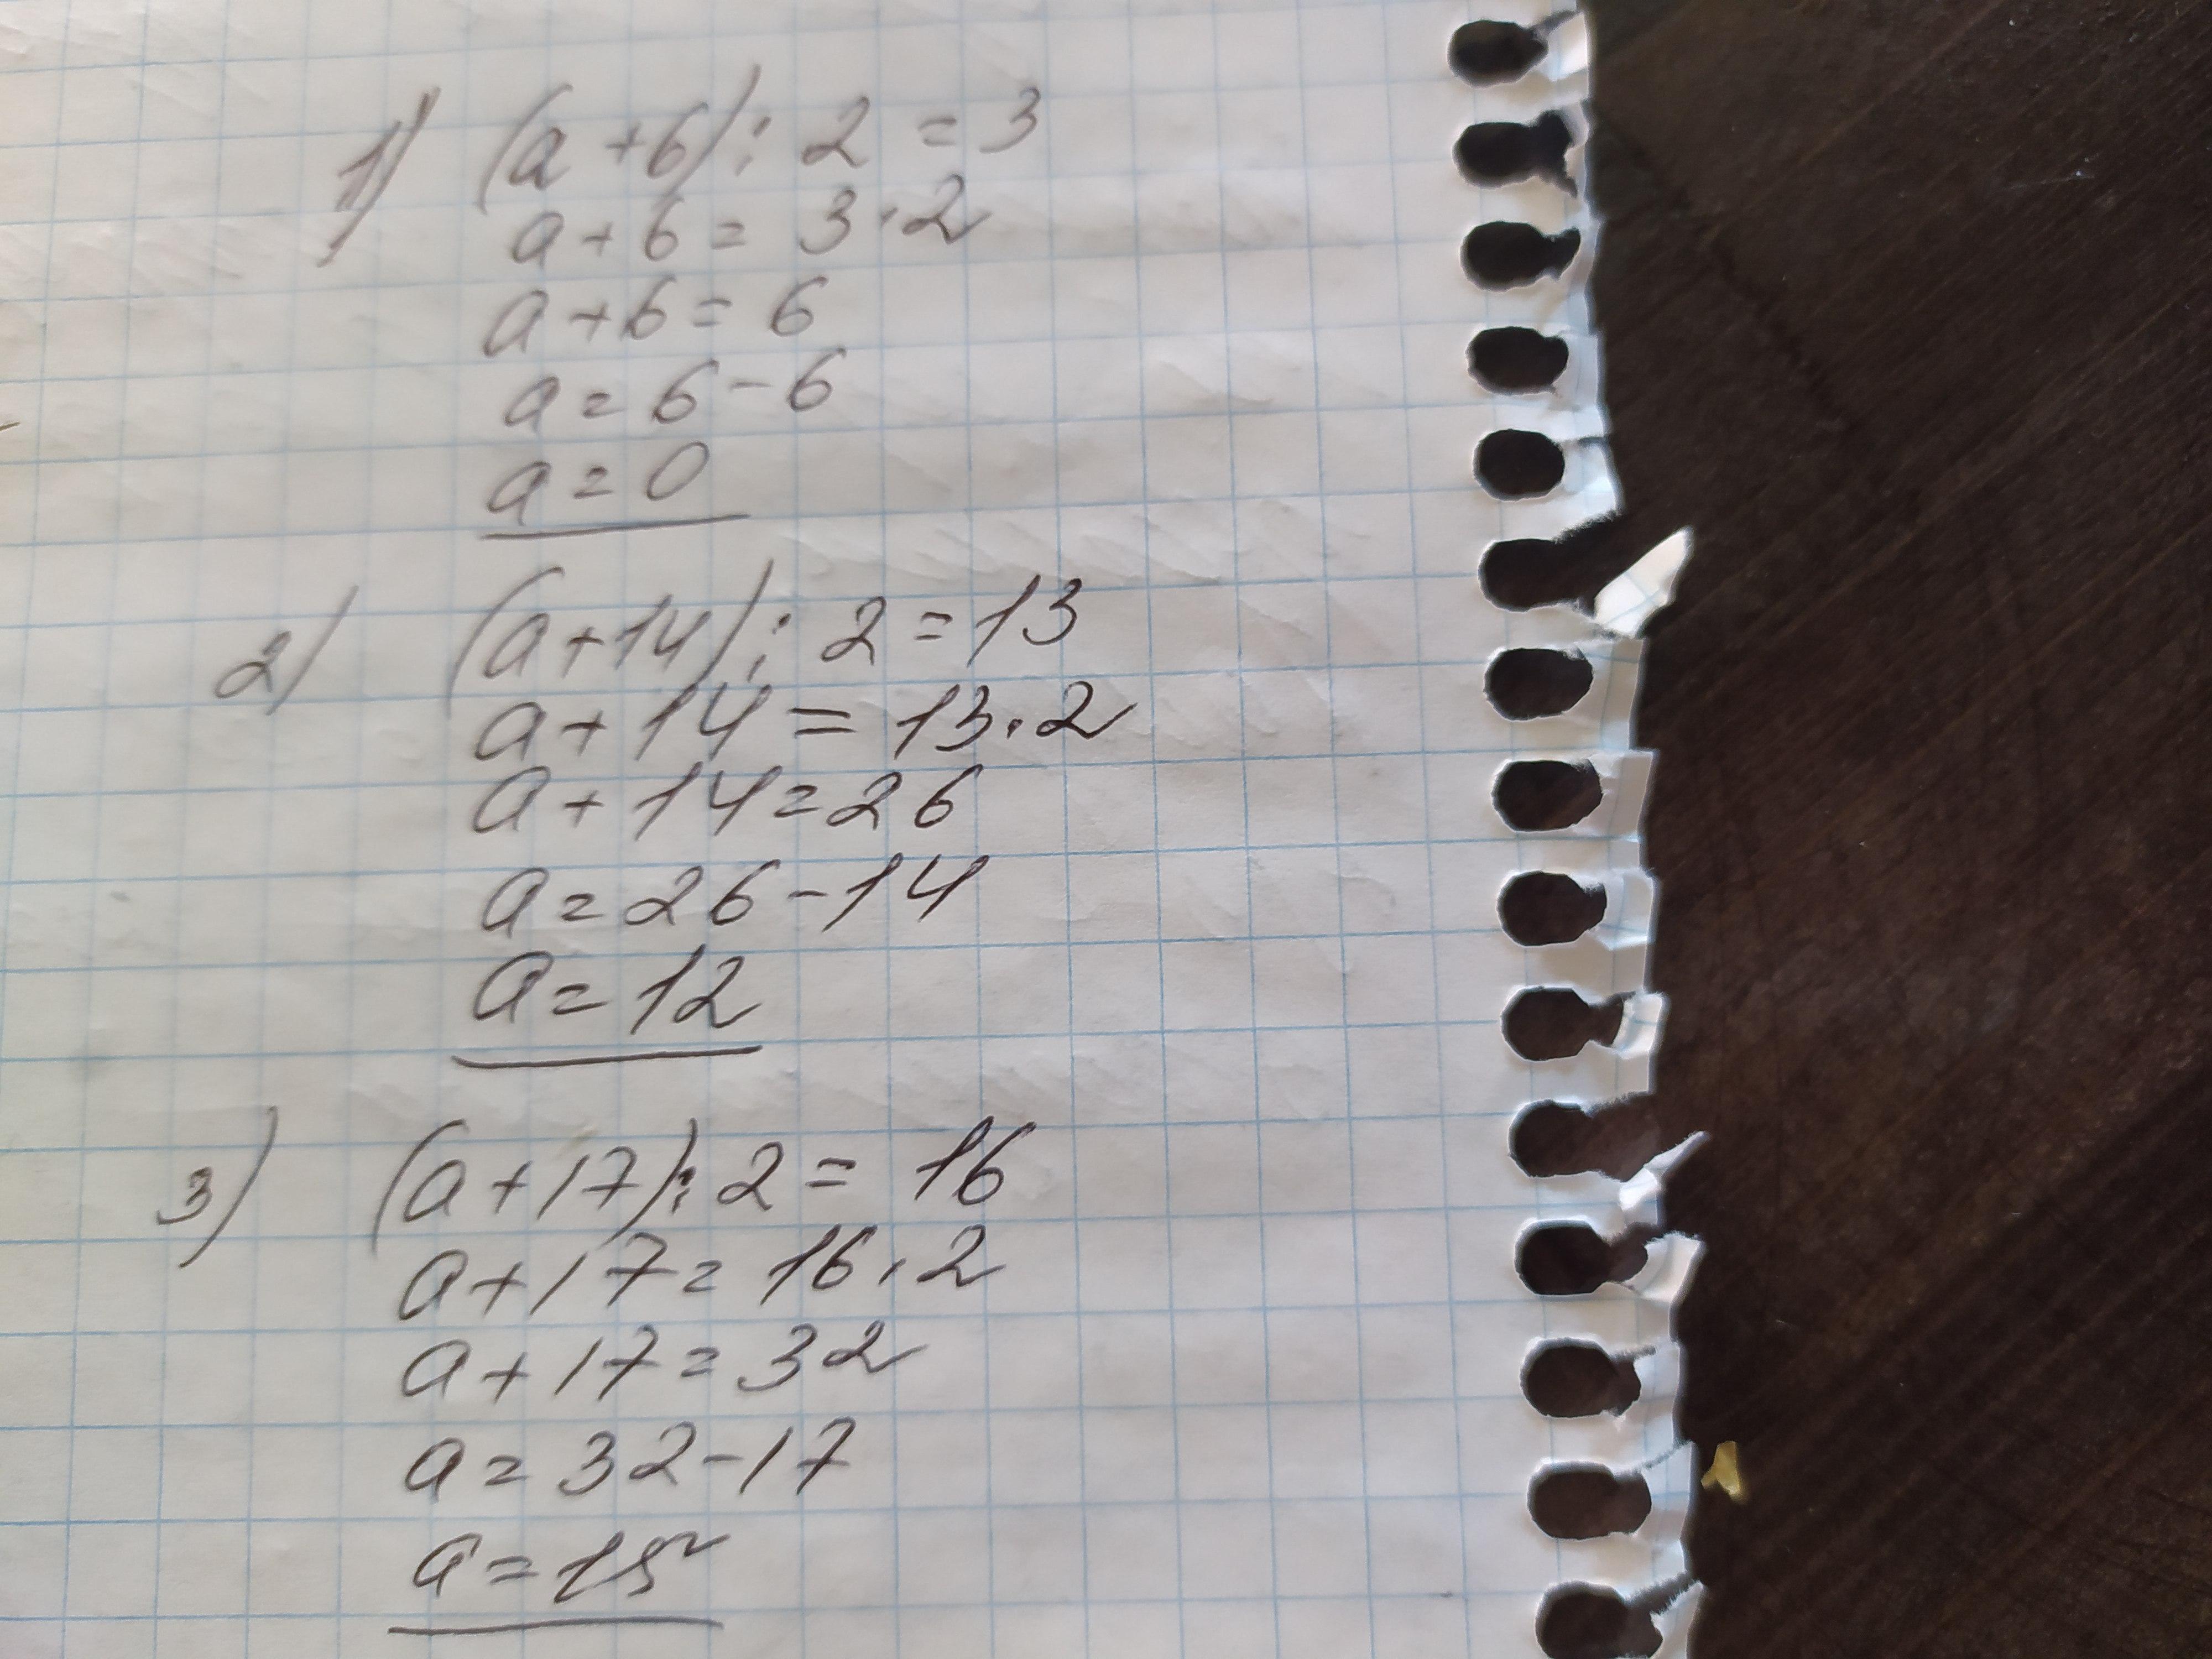 1) (a+6):2=3
a+6=3·2
a+6=6
a=6-6
a=0
2) (a+14):2=13
a+14=13·2
a+14=26
a=26-14
a=12
3) (a+17):2=16
a+17=16·2
a+17=32
a=32-17
a=15